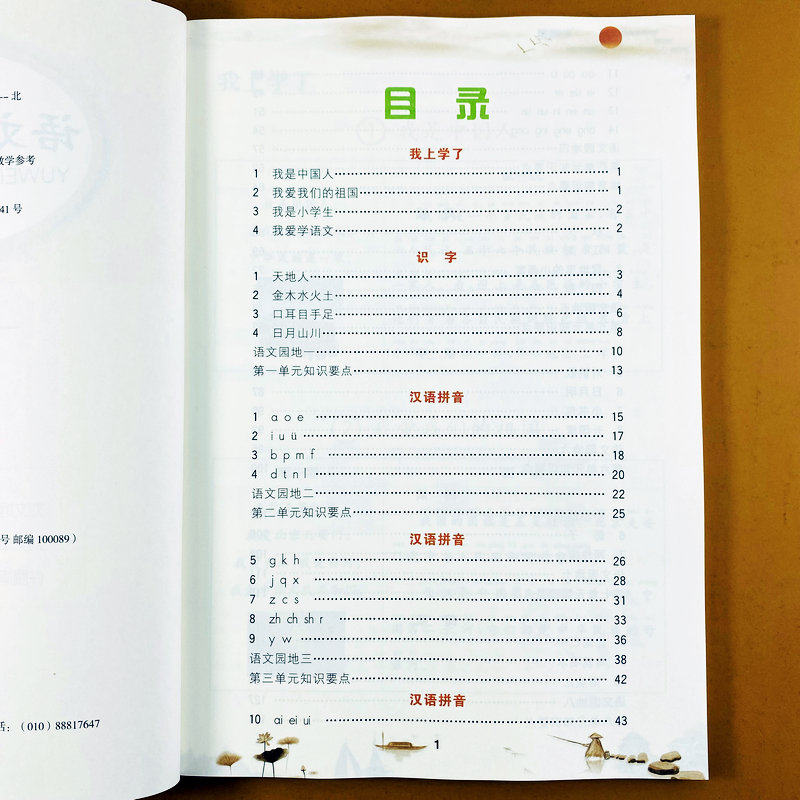 -- 北
教学参考
41 号
号 邮编 100089）
话：（010）88817647
目 录
我上学了
1 我是中国人 1
2 我爱我们的祖国 1
3 我是小学生 2
4 我爱学语文 2
识 字
1 天地人 3
2 金木水火土 4
3 口耳目手足 6
4 日月山川 8
语文园地一 10
第一单元知识要点 13
汉语拼音
1 a o e 15
2 i u ü 17
3 b p m f 18
4 d t n l 20
语文园地二 22
第二单元知识要点 25
汉语拼音
5 g k h 26
6 j q x 28
7 z c s 31
8 zh ch sh r 33
9 y w 36
语文园地三 38
第三单元知识要点 42
汉语拼音
10 ai ei ui 43
1